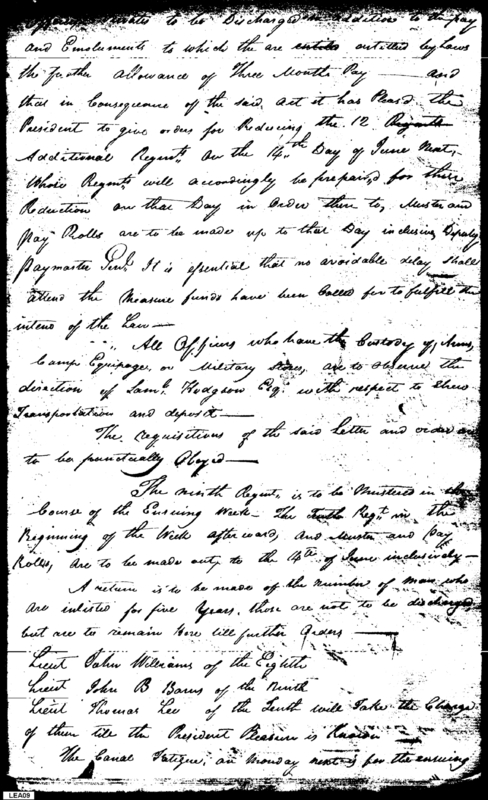 Officers & Privates to be Discharged in addition to the pay
and Emoluments to which the are entitled by Laws
the further allowance of Three Months Pay — and
that in Consequence of the said Act it has Pleasd the
President to give orders for Reducing the 12
Additional Regents. On the 14th Day of June Next,
Whose Regents will accordingly be prepaird for there
Reduction on that Day in Order there to, Muster and
Pay Rolls are to be made up to that Day inclusive, Deputy
Paymaster Genl. It is essential that no avoidable delay shall
attend the Measure funds have been Called for to fulfill the
intend of the Law —
All Officers who have the Custody of Arms,
Camp Equipage, or Military Stores, are to observe the
direction of Saml. Hodgson Esqr. with respect to there
Transportation and deposit —
The requisitions of the said Letter and order are
to be punctually Obeyed —
The ninth Regent. is to be Mustered in the
Course of the Ensuing Week — The Tenth Regt. in the
Beginning of the Week afterward, and Muster and Pay
Rolls, are to be made out, to the 14th of June inclusively —
A return is to be made of the number of men who
are inlisted for five Years, those are not to be discharged
but are to remain Here till further Orders —
Lieut John Williams of the Eighth
Lieut John B Barns of the Ninth
Lieut Thomas Lee of the Tenth will Take the Charge
of them till the President Pleasure is Known
The Canal Fatigue, on Monday next is for the ensuing
LEA09